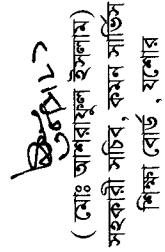 ( মোঃ আশরাফুল ইসলাম)
সহকারী সচিব, কমন সার্ভিস
শিক্ষা বোর্ড, যশোর